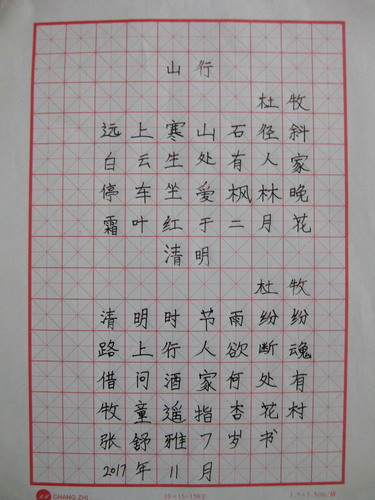 山行
杜牧
远上寒山石径斜
白云生处有人家
停车坐爱枫林晚
霜叶红于二月花
清明
杜牧
清明时节雨纷纷
路上行人欲断魂
借问酒家何处有
牧童遥指杏花村
张舒雅7岁书
2017年11月
CHANG ZHI